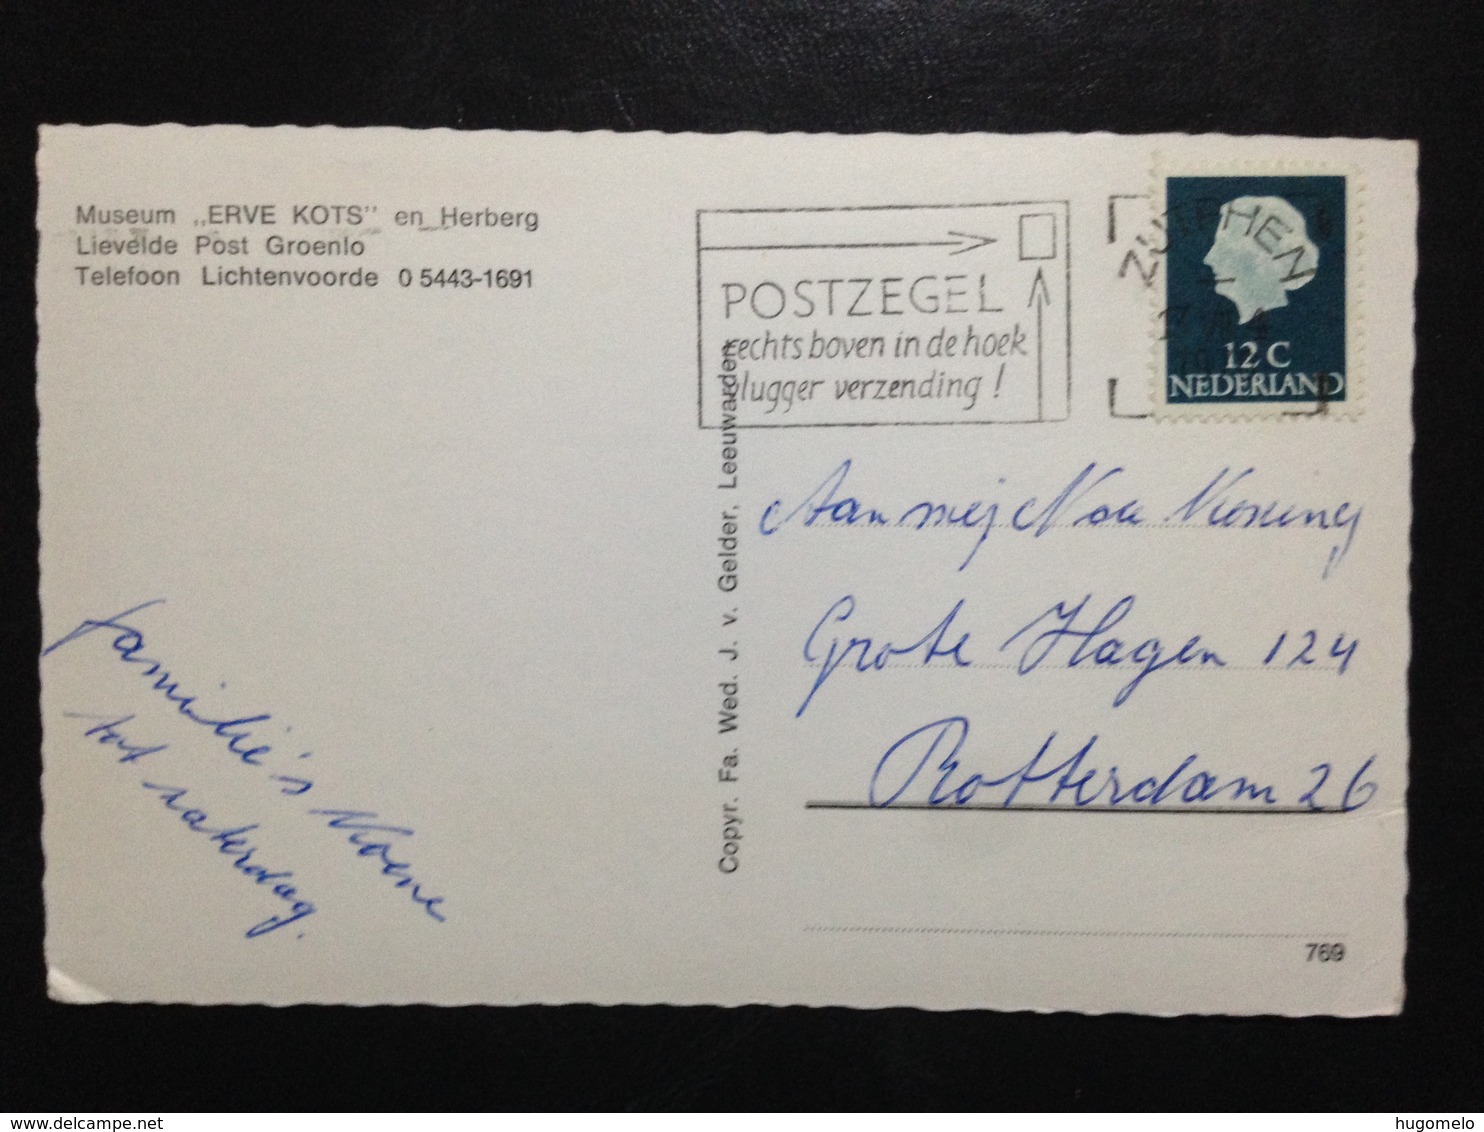 Museum „ERVE KOTS” en Herberg
Lievelde Post Groenlo
Telefoon Lichtenvoorde 0 5443-1691
POSTZEGEL
rechts boven in de hoek
vlugger verzending!
ZUTPHEN
12 C
NEDERLAND
Copyr. Fa. Wed. J. v. Gelder, Leeuwarden
Aan mej
Grote Hagen 124
Rotterdam 26
familie's
tot zaterdag.
769
delcampe.net
hugomelo